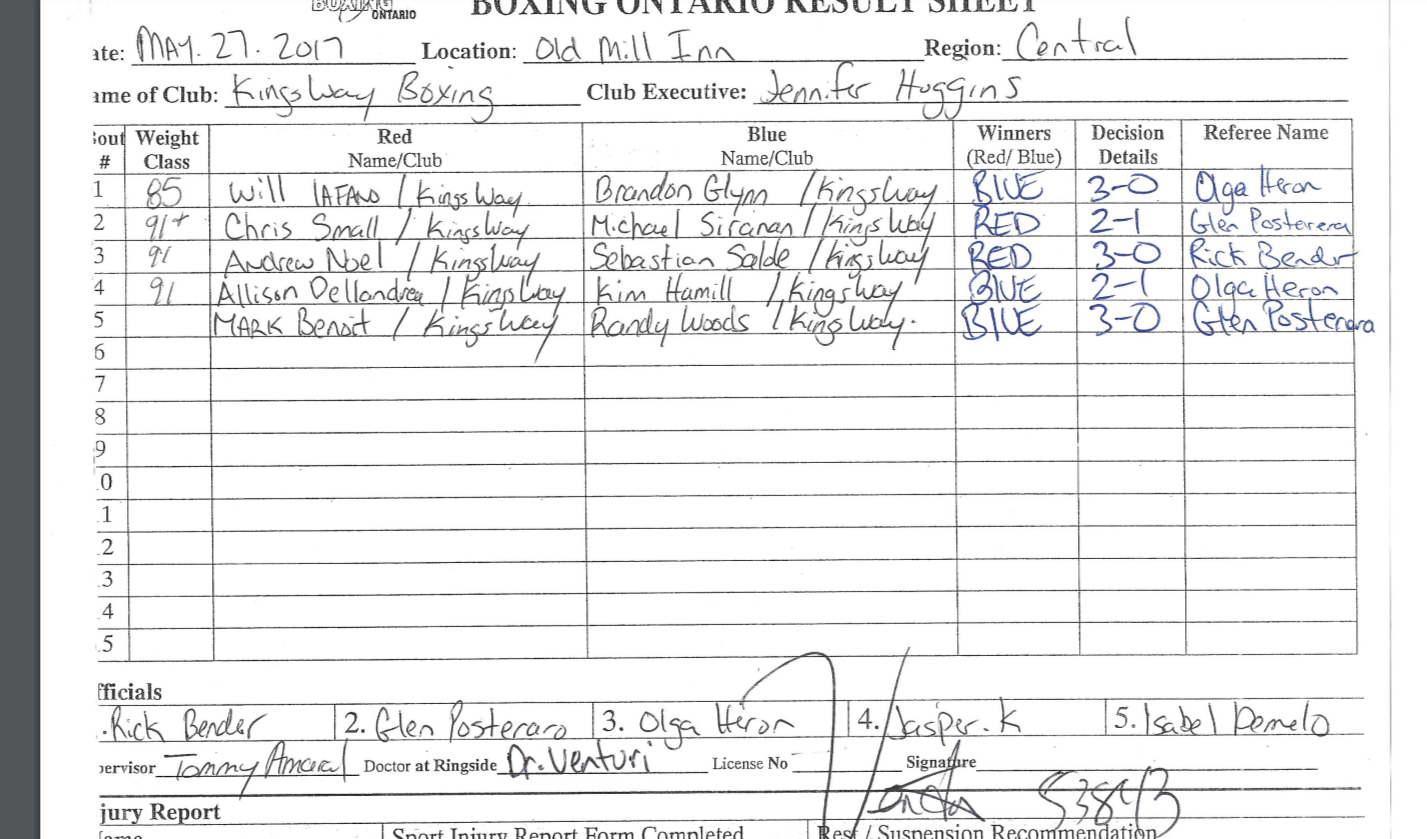 BOXING ONTARIO BOXING ONTARIO RESULT SHEET
ate: MAY. 27. 2017 Location: Old Mill Inn Region: Central
ame of Club: Kingsway Boxing Club Executive: Jennifer Huggins
out # Weight Class Red Name/Club Blue Name/Club Winners (Red/ Blue) Decision Details Referee Name
1 85 Will IAFANO / KingsWay Brandon Glynn / Kingsway BLUE 3-0 Olga Heron
2 91+ Chris Small / KingsWay Michael / Kings Way RED 2-1 Glen
3 91 Andrew Noel / Kingsway Sebastian Salde / Kingsway RED 3-0 Rick Bender
4 91 Allison Dellandrea / Kingsway Kim Hamill / Kingsway BLUE 2-1 Olga Heron
5 MARK Benoit / Kingsway Randy Woods / Kingsway. BLUE 3-0 Glen
6
7
8
9
0
1
2
3
4
5
fficials
.Rick Bender 2. Glen Posteraro 3. Olga Heron 4. Jasper.K 5. Isabel Demelo
pervisor Tommy Amaral Doctor at Ringside Dr. Venturi License No Signature
jury Report
Name Sport Injury Report Form Completed Rest / Suspension Recommendation